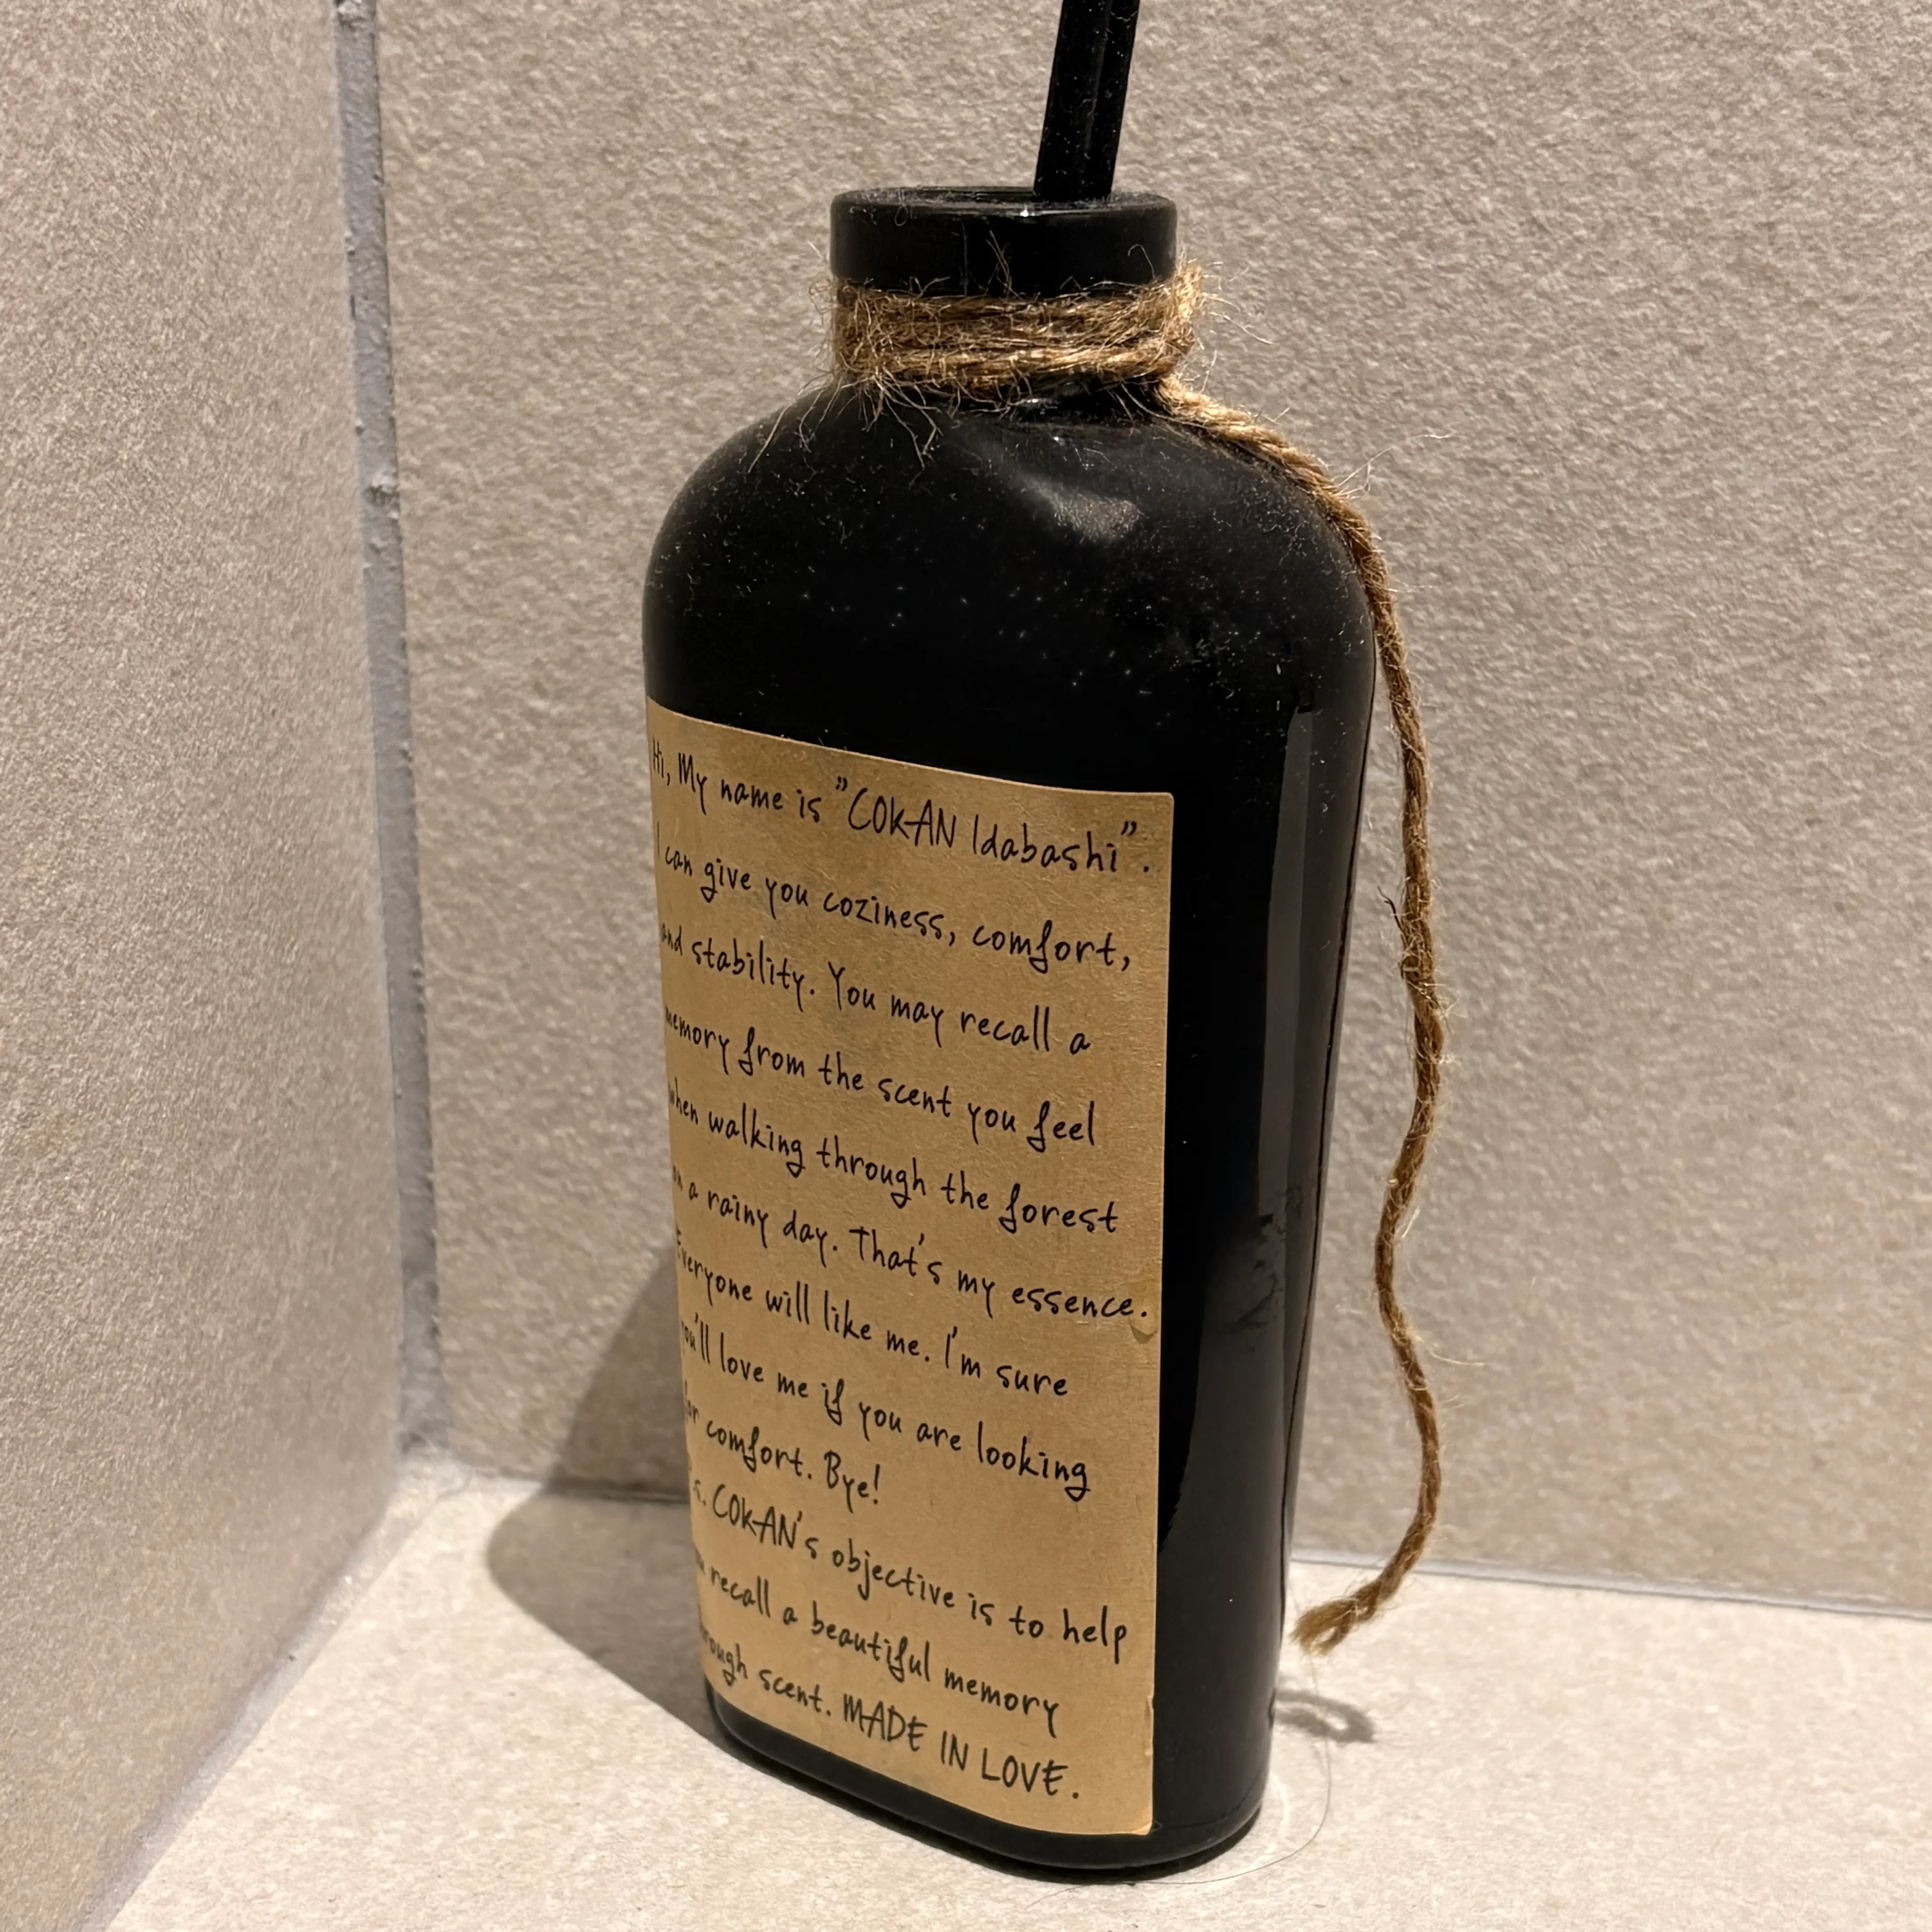 Hi, My name is "COKAN Idabashi".
I can give you coziness, comfort,
and stability. You may recall a
memory from the scent you feel
when walking through the forest
on a rainy day. That's my essence.
Everyone will like me. I'm sure
you'll love me if you are looking
for comfort. Bye!
COKAN's objective is to help
recall a beautiful memory
through scent. MADE IN LOVE.